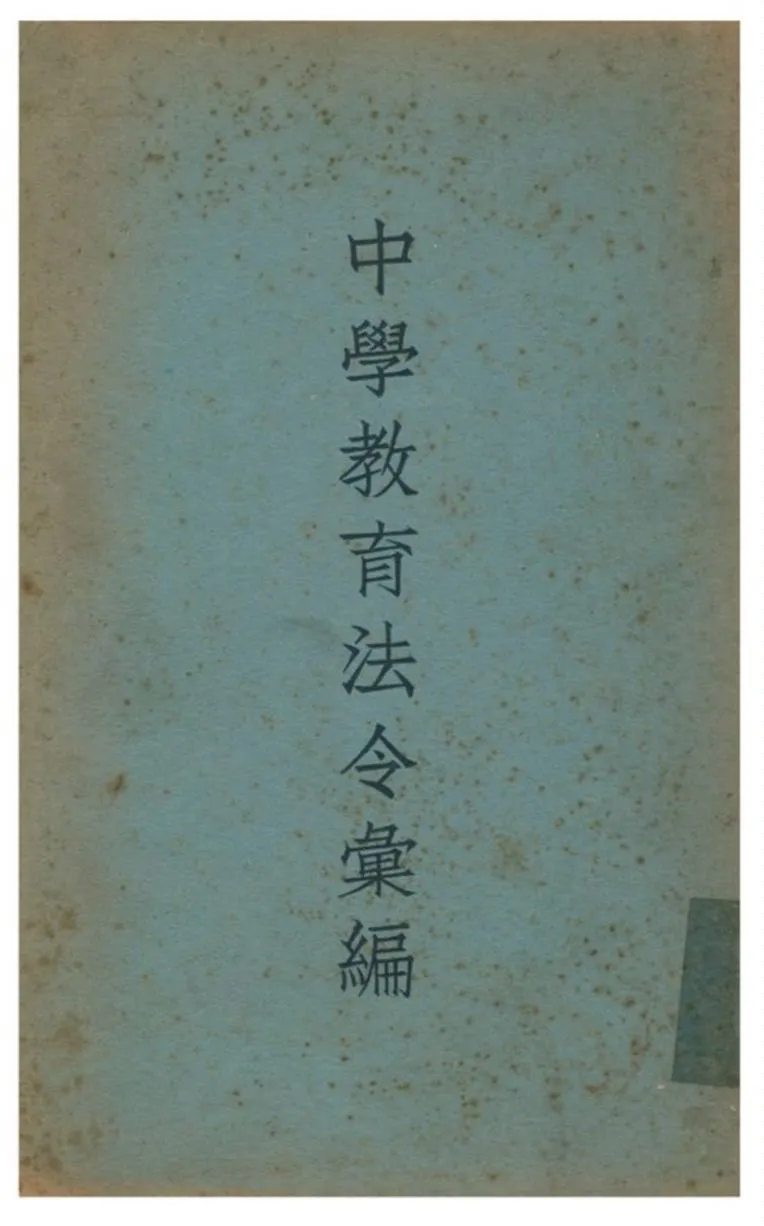 中學教育法令彙編